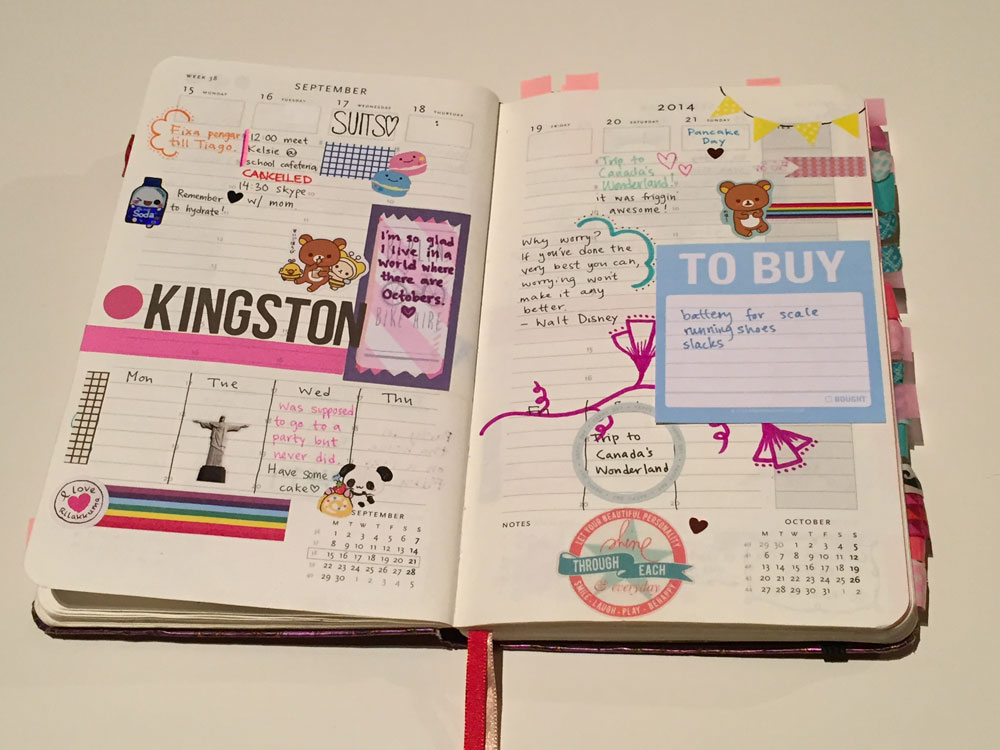 WEEK 38
SEPTEMBER
15 MONDAY
16 TUESDAY
17 WEDNESDAY
18 THURSDAY
SUITS♡
Fixa pengar
till Tiago.
12:00 meet
Kelsie @
school cafeteria
CANCELLED
14:30 skype
w/ mom
Soda
Remember
to hydrate!
I'm so glad
I live in a
world where
there are
Octobers.
BIKE AIRE
KINGSTON
Mon
Tue
Wed
Thu
was supposed
to go to a
party but
never did.
Have some
cake♡
I love
Rilakkuma
SEPTEMBER
M T W T F S S
36 1 2 3 4 5 6 7
37 8 9 10 11 12 13 14
38 15 16 17 18 19 20 21
39 22 23 24 25 26 27 28
40 29 30 1 2 3 4 5
2014
19 FRIDAY
20 SATURDAY
21 SUNDAY
Pancake
Day
Trip to
Canada's
Wonderland!
it was friggin'
awesome!
Why worry?
If you've done the
very best you can,
worrying won't
make it any
better.
- Walt Disney
TO BUY
battery for scale
running shoes
slacks
BOUGHT
15
16
Trip to
Canada's
Wonderland
20
20
NOTES
LET YOUR BEAUTIFUL PERSONALITY
shine
THROUGH EACH
& everyday
SMILE - LAUGH - PLAY - BE HAPPY
OCTOBER
M T W T F S S
40 29 30 1 2 3 4 5
41 6 7 8 9 10 11 12
42 13 14 15 16 17 18 19
43 20 21 22 23 24 25 26
44 27 28 29 30 31 1 2